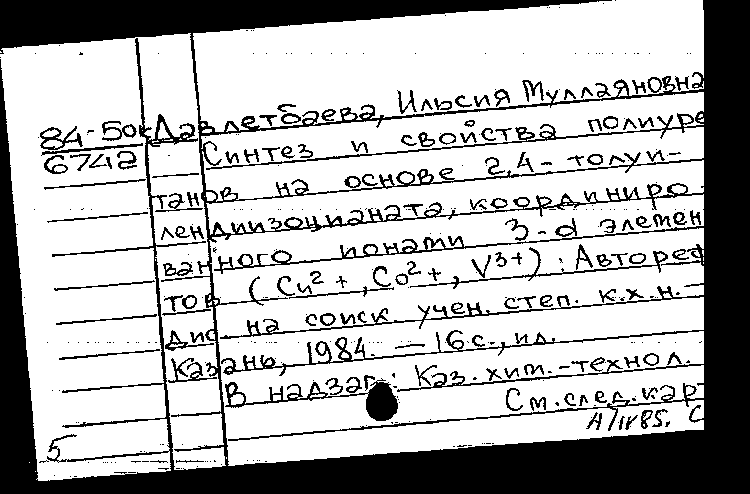 84-50к Давлетбаева, Ильсия Муллаяновна
6742 Синтез и свойства полиуре
танов на основе 2,4-толуи-
лендиизоцианата, координиро-
ванного ионами 3-d элемен
тов (Cu2+, Co2+, V3+): Автореф
дис. на соиск. учен. степ. к.х.н. —
Казань, 1984. — 16 с., ил.
В надзаг.: Каз. хим.-технол.
См. след. кар
5